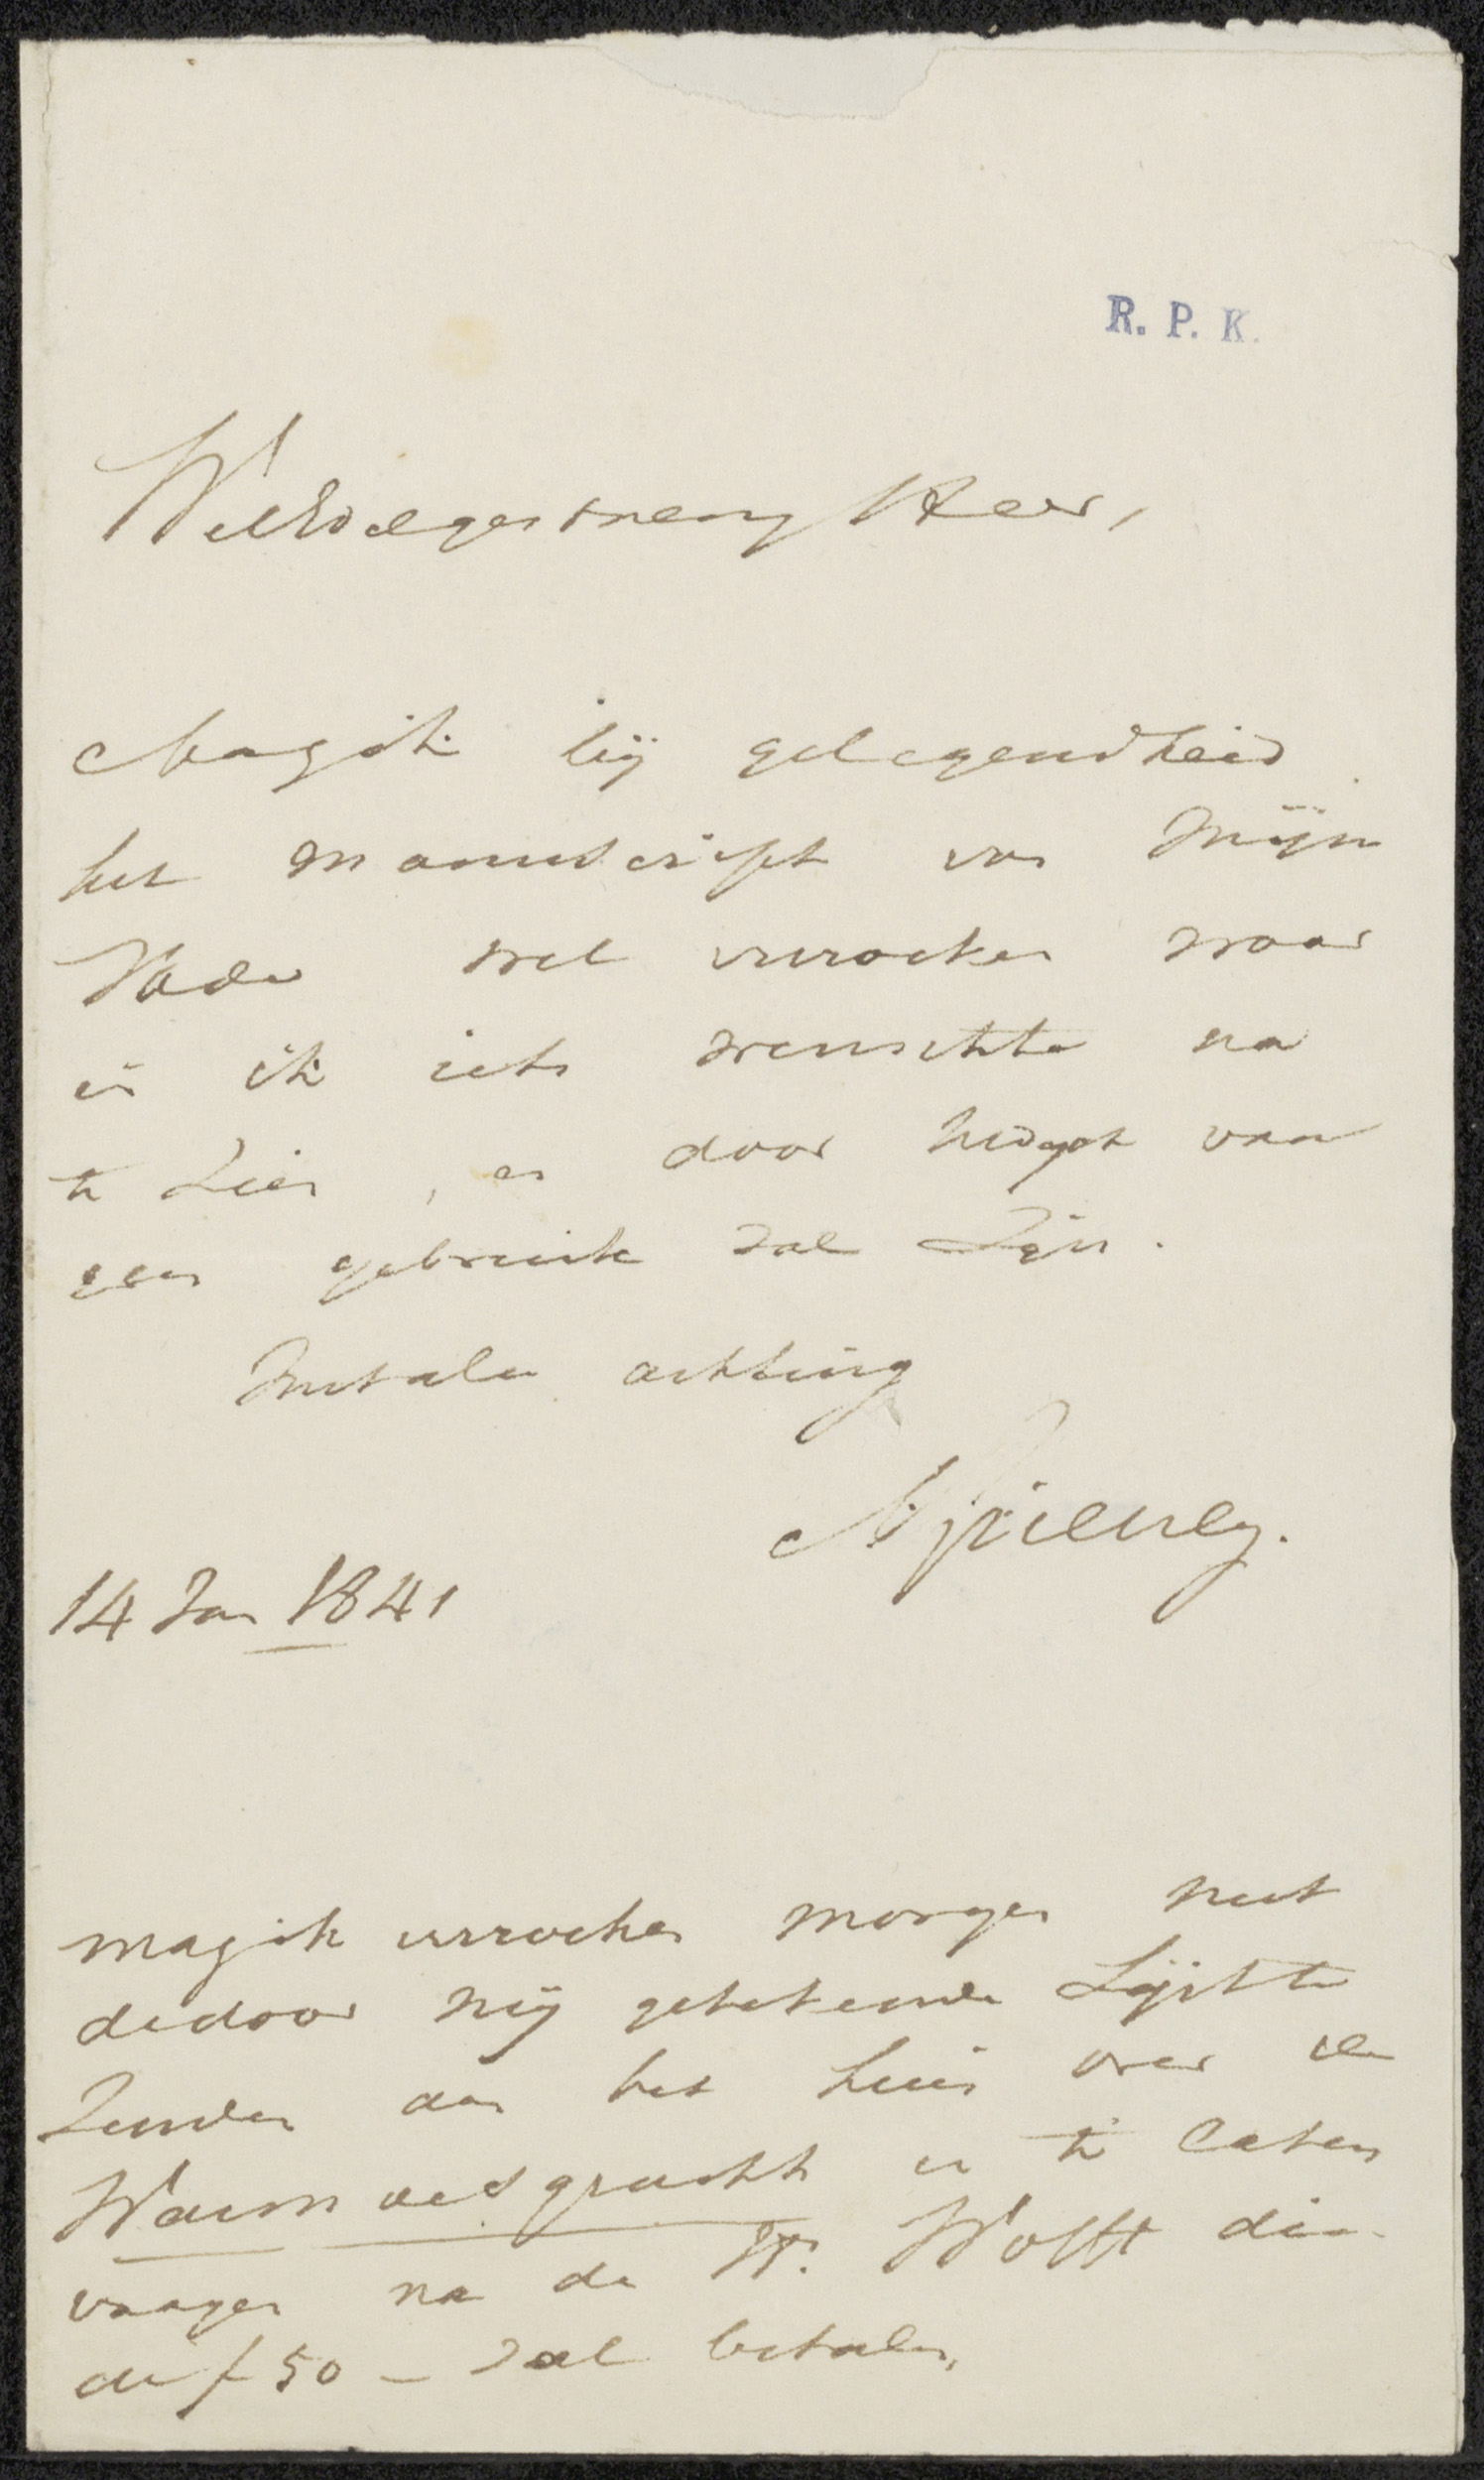 R. P. K.
WelEdelgestreng Heer,
Mag ik bij gelegendheid
het manuscript van mijn
Vader wel verzoeken waar
in ik iets wenschte na
te zien, en door
geen gebruik zal zijn.
met alle achting
N Pieneman.
14 Jan 1841
mag ik verzoeken morgen met
de door mij getekende Lijst te
zenden aan het huis over de
Warmoesgracht en te laten
vragen na de Hr. Wolfft die
de f 50 – zal betalen,